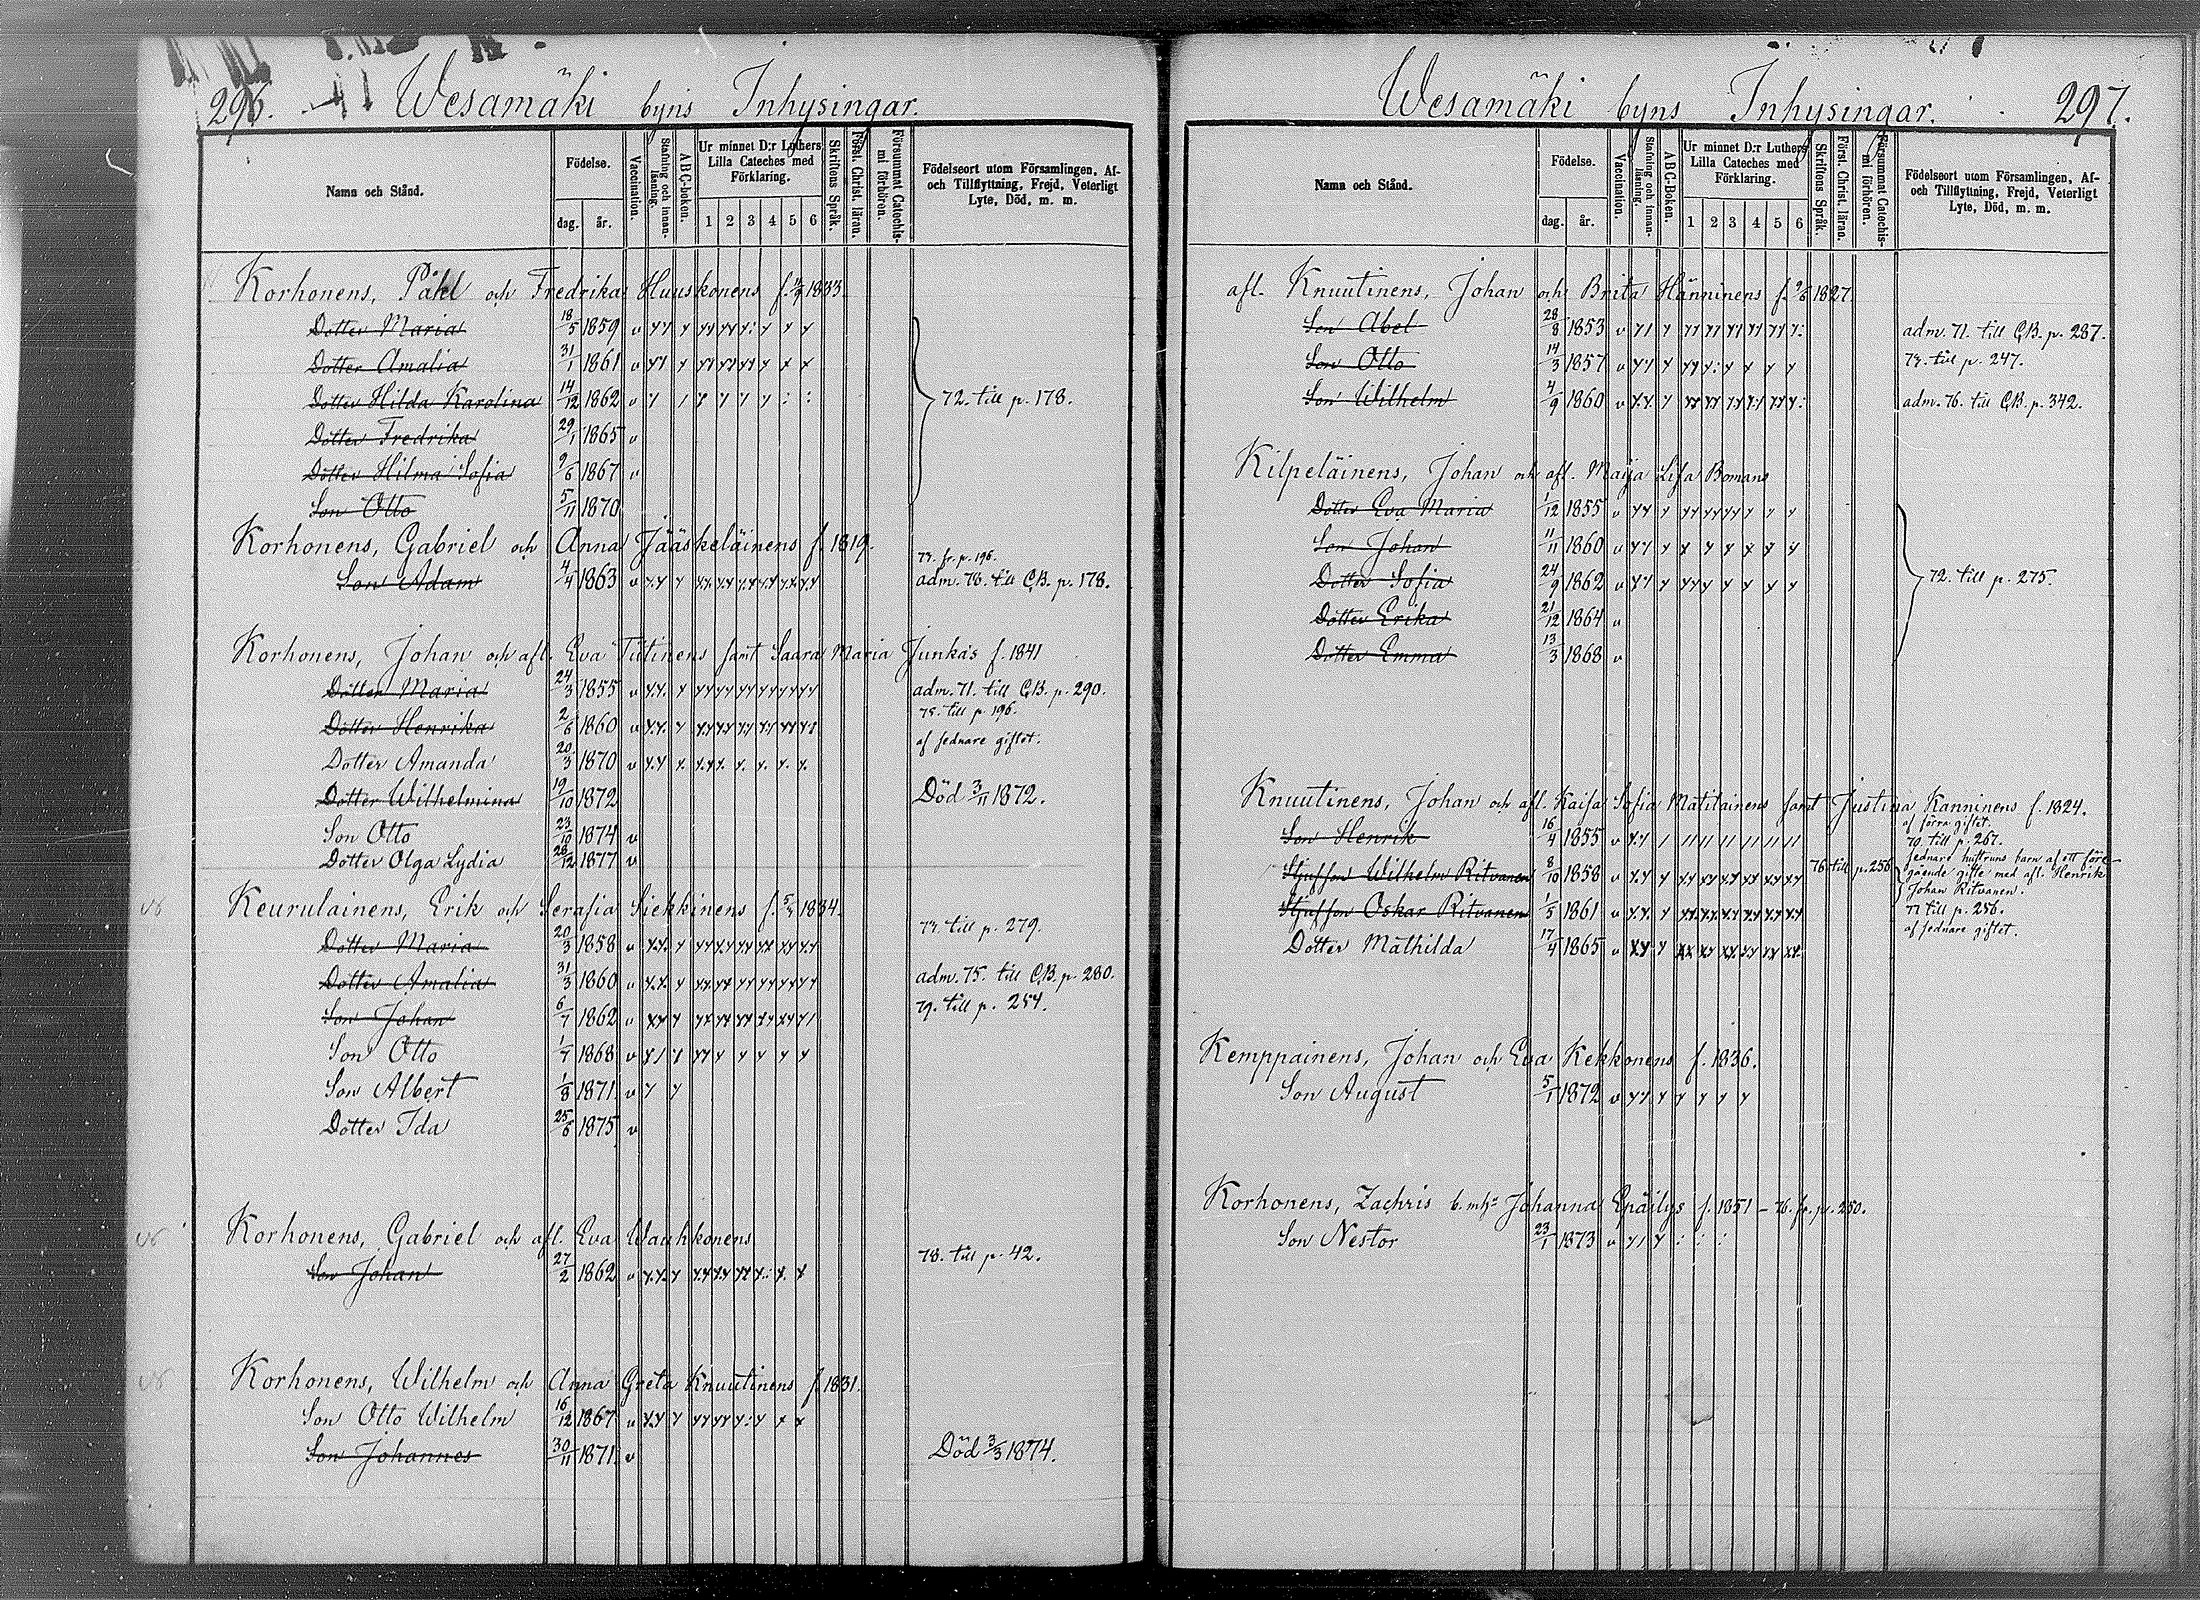 296. Wesamäki byns Inhysingar.
Namn och Stånd.
Födelse.
dag. år.
Vaccination.
Stafning och innanläsning.
ABC-boken.
Ur minnet D:r Luthers Lilla Cateches med Förklaring.
1 2 3 4 5 6
Skriftens Språk.
Först. Christ. läran.
Försummat Catechismi förhören.
Födelseort utom Församlingen, Af- och Tillflyttning, Frejd, Veterligt Lyte, Död, m. m.
Korhonens, Påhl och Fredrika Huuskonens f. 1833.
Dotter Maria 18/5 1859 v
Dotter Amalia 31/1 1861 v
Dotter Hilda Karolina 14/12 1862 v 72. till p. 178.
Dotter Fredrika 29/1 1865 v
Dotter Hilma Sofia 9/6 1867 v
Son Otto 5/11 1870
Korhonens, Gabriel och Anna Jääskeläinens f. 1819.
73. fr. p. 196.
Son Adam 4/4 1863 v adm. 78. till C.B. p. 178.
Korhonens, Johan och afl. Eva Tiitinens samt Saara Maria Junkas f. 1841
Dotter Maria 24/3 1855 v adm. 71. till C.B. p. 290.
75. till p. 196.
Dotter Henrika 2/6 1860 v
af sednare giftet.
Dotter Amanda 20/3 1870 v
Dotter Wilhelmina 19/10 1872 Död 3/11 1872.
Son Otto 23/10 1874 v
Dotter Olga Lydia 28/12 1877 v
Keurulainens, Erik och Serafia Siekkinens f. 1834.
Dotter Maria 20/3 1858 v 73. till p. 279.
Dotter Amalia 31/3 1860 v adm. 75. till C.B. p. 280.
Son Johan 6/7 1862 v 79. till p. 254.
Son Otto 1/7 1868 v
Son Albert 1/8 1871 v
Dotter Ida 25/6 1875 v
Korhonens, Gabriel och afl. Eva Wauhkonens
Son Johan 27/2 1862 v 78. till p. 42.
Korhonens, Wilhelm och Anna Greta Knuutinens f. 1831.
Son Otto Wilhelm 16/12 1867 v
Son Johannes 30/11 1871 v Död 3/3 1874.
Wesamäki byns Inhysingar. 297.
Namn och Stånd.
Födelse.
dag. år.
Vaccination.
Stafning och innanläsning.
ABC-boken.
Ur minnet D:r Luthers Lilla Cateches med Förklaring.
1 2 3 4 5 6
Skriftens Språk.
Först. Christ. läran.
Försummat Catechismi förhören.
Födelseort utom Församlingen, Af- och Tillflyttning, Frejd, Veterligt Lyte, Död, m. m.
afl. Knuutinens, Johan och Brita Hänninens f. 9/6 1827.
Son Abel 28/8 1853 v adm. 71. till C.B. p. 287.
Son Otto 14/3 1857 v 73. till p. 247.
Son Wilhelm 4/9 1860 v adm. 76. till C.B. p. 342.
Kilpeläinens, Johan och afl. Maija Lisa Bomans
Dotter Eva Maria 1/12 1855 v
Son Johan 11/11 1860 v
Dotter Sofia 24/9 1862 v 72. till p. 275.
Dotter Erika 21/12 1864 v
Dotter Emma 13/3 1868 v
Knuutinens, Johan och afl. Kaisa Sofia Matilainens samt Justina Kanninens f. 1824.
af förra giftet.
Son Henrik 16/4 1855 v 70. till p. 267.
Stjufson Wilhelm Ritvanen 8/10 1858 v 76 till p. 256
sednare hustruns barn af ett föregående gifte med afl. Henrik Johan Ritvanen.
Stjufson Oskar Ritvanen 1/5 1861 v 77 till p. 256.
af sednare giftet.
Dotter Mathilda 17/4 1865 v
Kemppainens, Johan och Eva Kekkonens f. 1836.
Son August 5/1 1872 v
Korhonens, Zachris b. mhs Johanna Epäilys f. 1851 - 76. fr. p. 250.
Son Nestor 23/1 1873 v